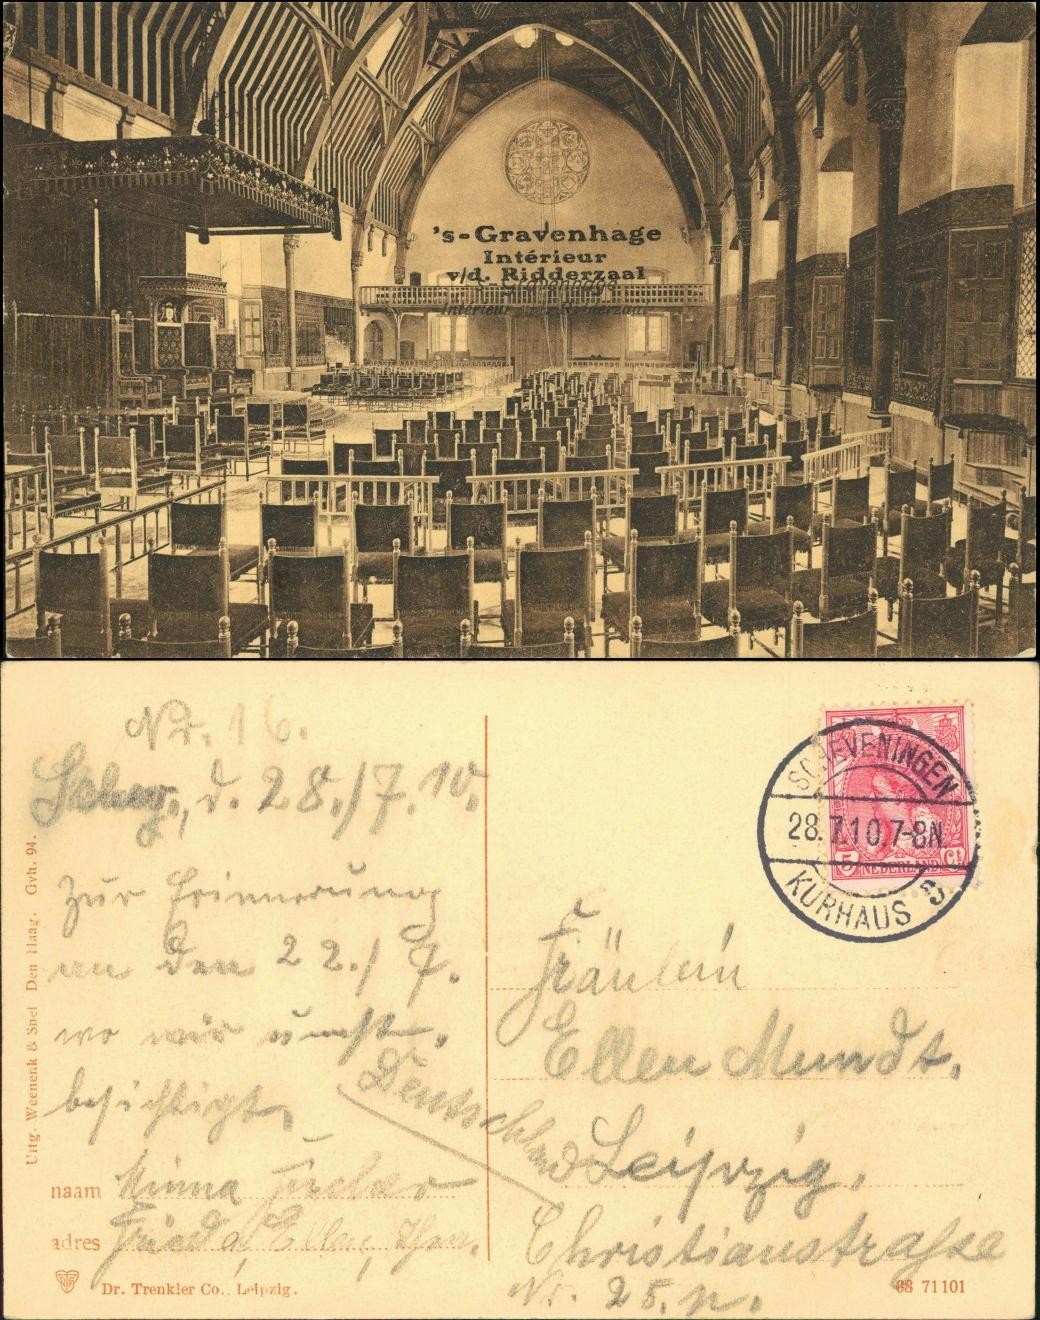 's-Gravenhage
Intérieur
v/d. Ridderzaal
Nr. 16.
Schev., d. 28./7.10.
Zur Erinnerung
an den 22./7.
wo wir
besichtigt.
naam Minna
adres Frieda, Ellen,
Dr. Trenkler Co., Leipzig.
Uitg. Weenenk & Snel Den Haag. Gvh. 94.
SCHEVENINGEN
28.7.10.7-8N
KURHAUS 5
5 NEDERLAND Ct
Fräulein
Ellen Mundt.
Deutschland
Leipzig.
Christianstraße
Nr. 25. p.
08 71101